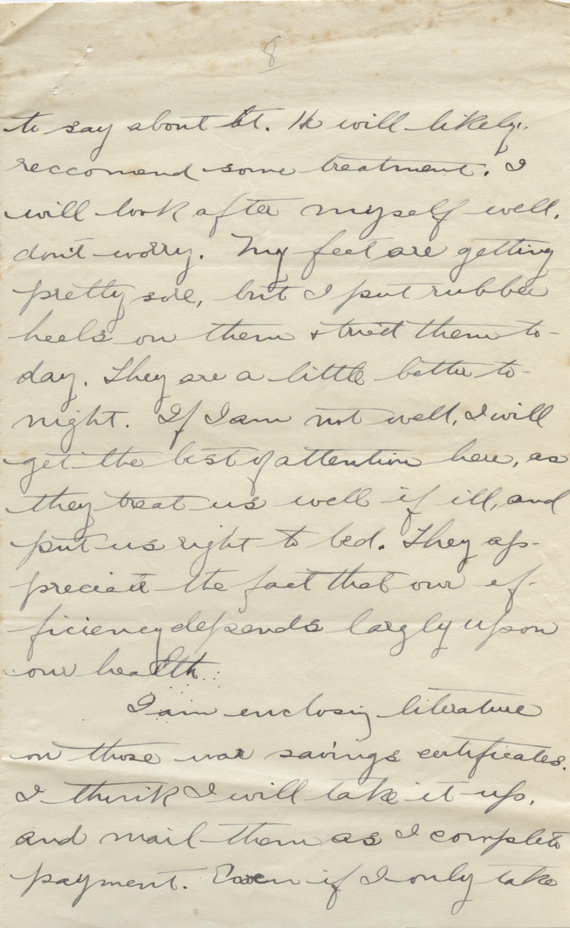 8
to say about it. He will likely
reccomend some treatment. I
will look after myself well,
don't worry. My feet are getting
pretty sore, but I put rubber
heels on them & tried them to-
day. They are a little better to-
night. If I am not well, I will
get the best of attention here, as
they treat us well if ill, and
put us right to bed. They ap-
preciate the fact that our ef-
ficiency depends largly upon
our health.
I am enclosing literature
on those war savings certificates.
I think I will take it up,
and mail them as I complete
payment. Even if I only take